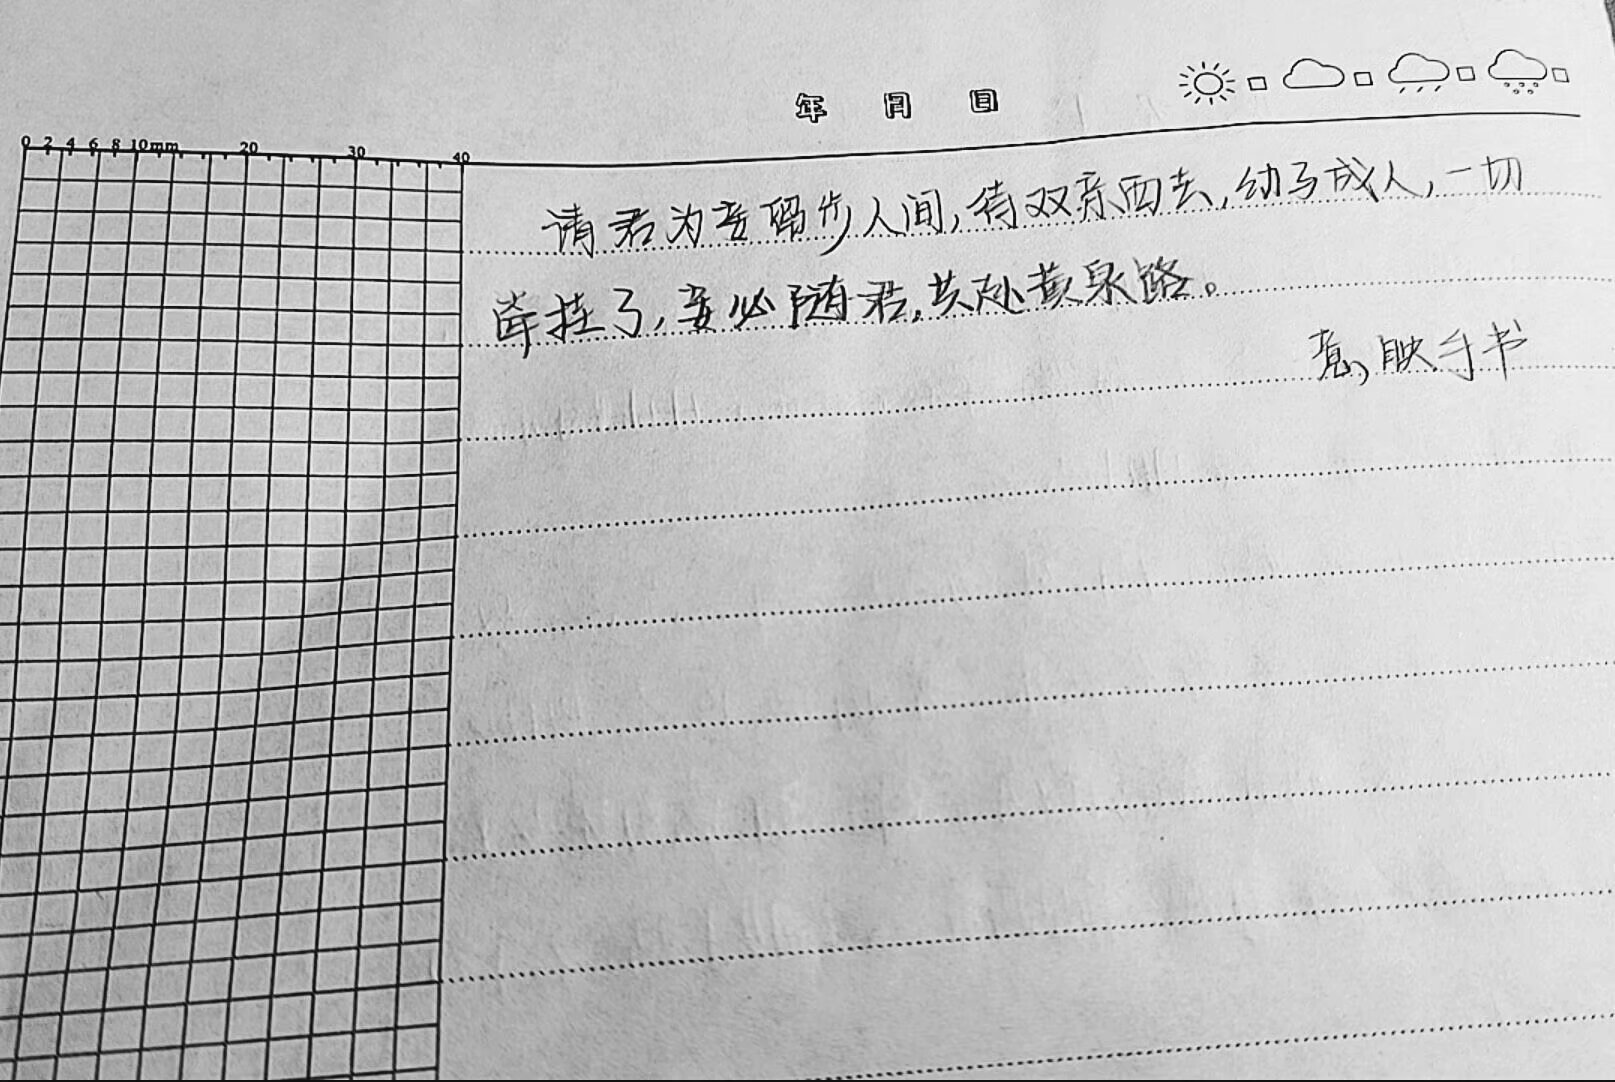 年 月 日
0 2 4 6 8 10mm 20 30 40
请君为妾留步人间,待双亲西去,幼子成人,一切
牵挂了,妾必随君,共赴黄泉路。
意映手书